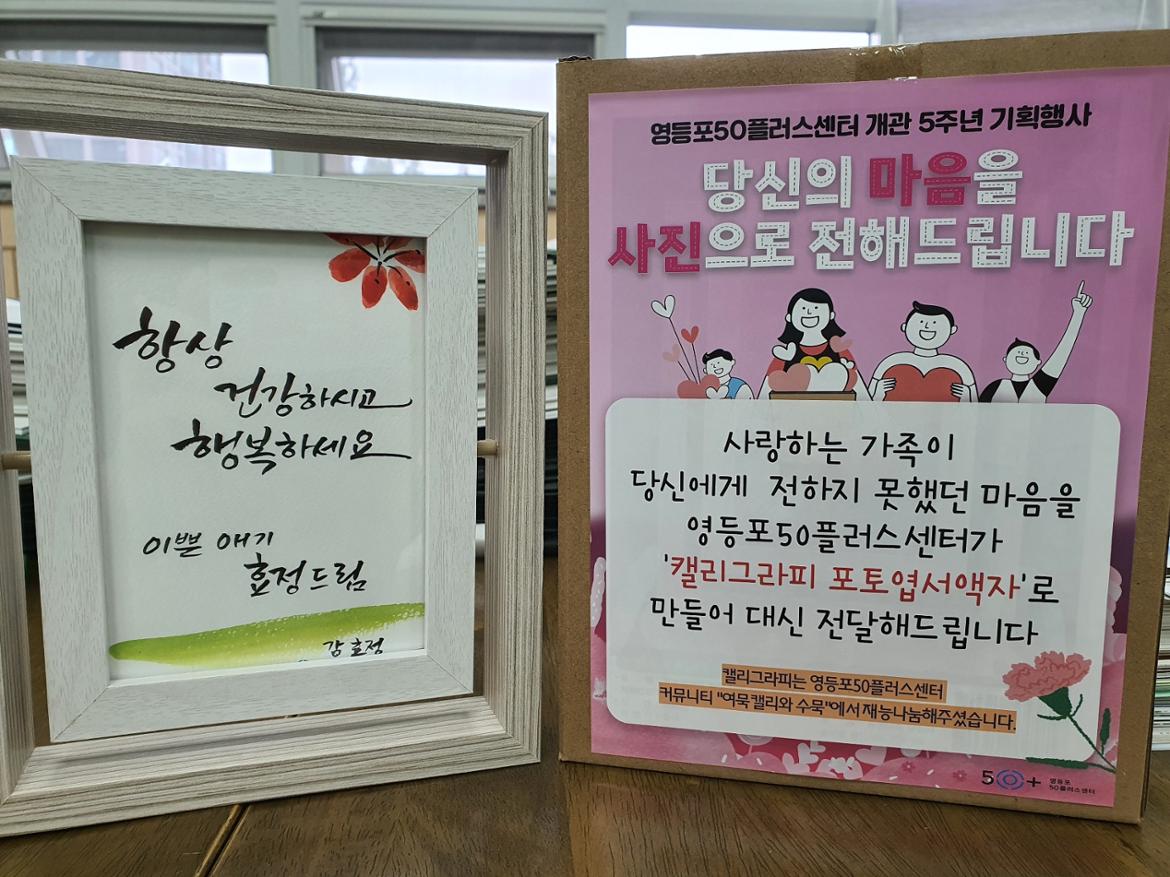 항상
건강하시고
행복하세요
이쁜 애기
효정드림
감효정
영등포50플러스센터 개관 5주년 기획행사
당신의 마음을
사진으로 전해드립니다
사랑하는 가족이
당신에게 전하지 못했던 마음을
영등포50플러스센터가
'캘리그라피 포토엽서액자'로
만들어 대신 전달해드립니다
캘리그라피는 영등포50플러스센터
커뮤니티 "여묵캘리와 수묵"에서 재능나눔해주셨습니다.
50+ 영등포
50플러스센터